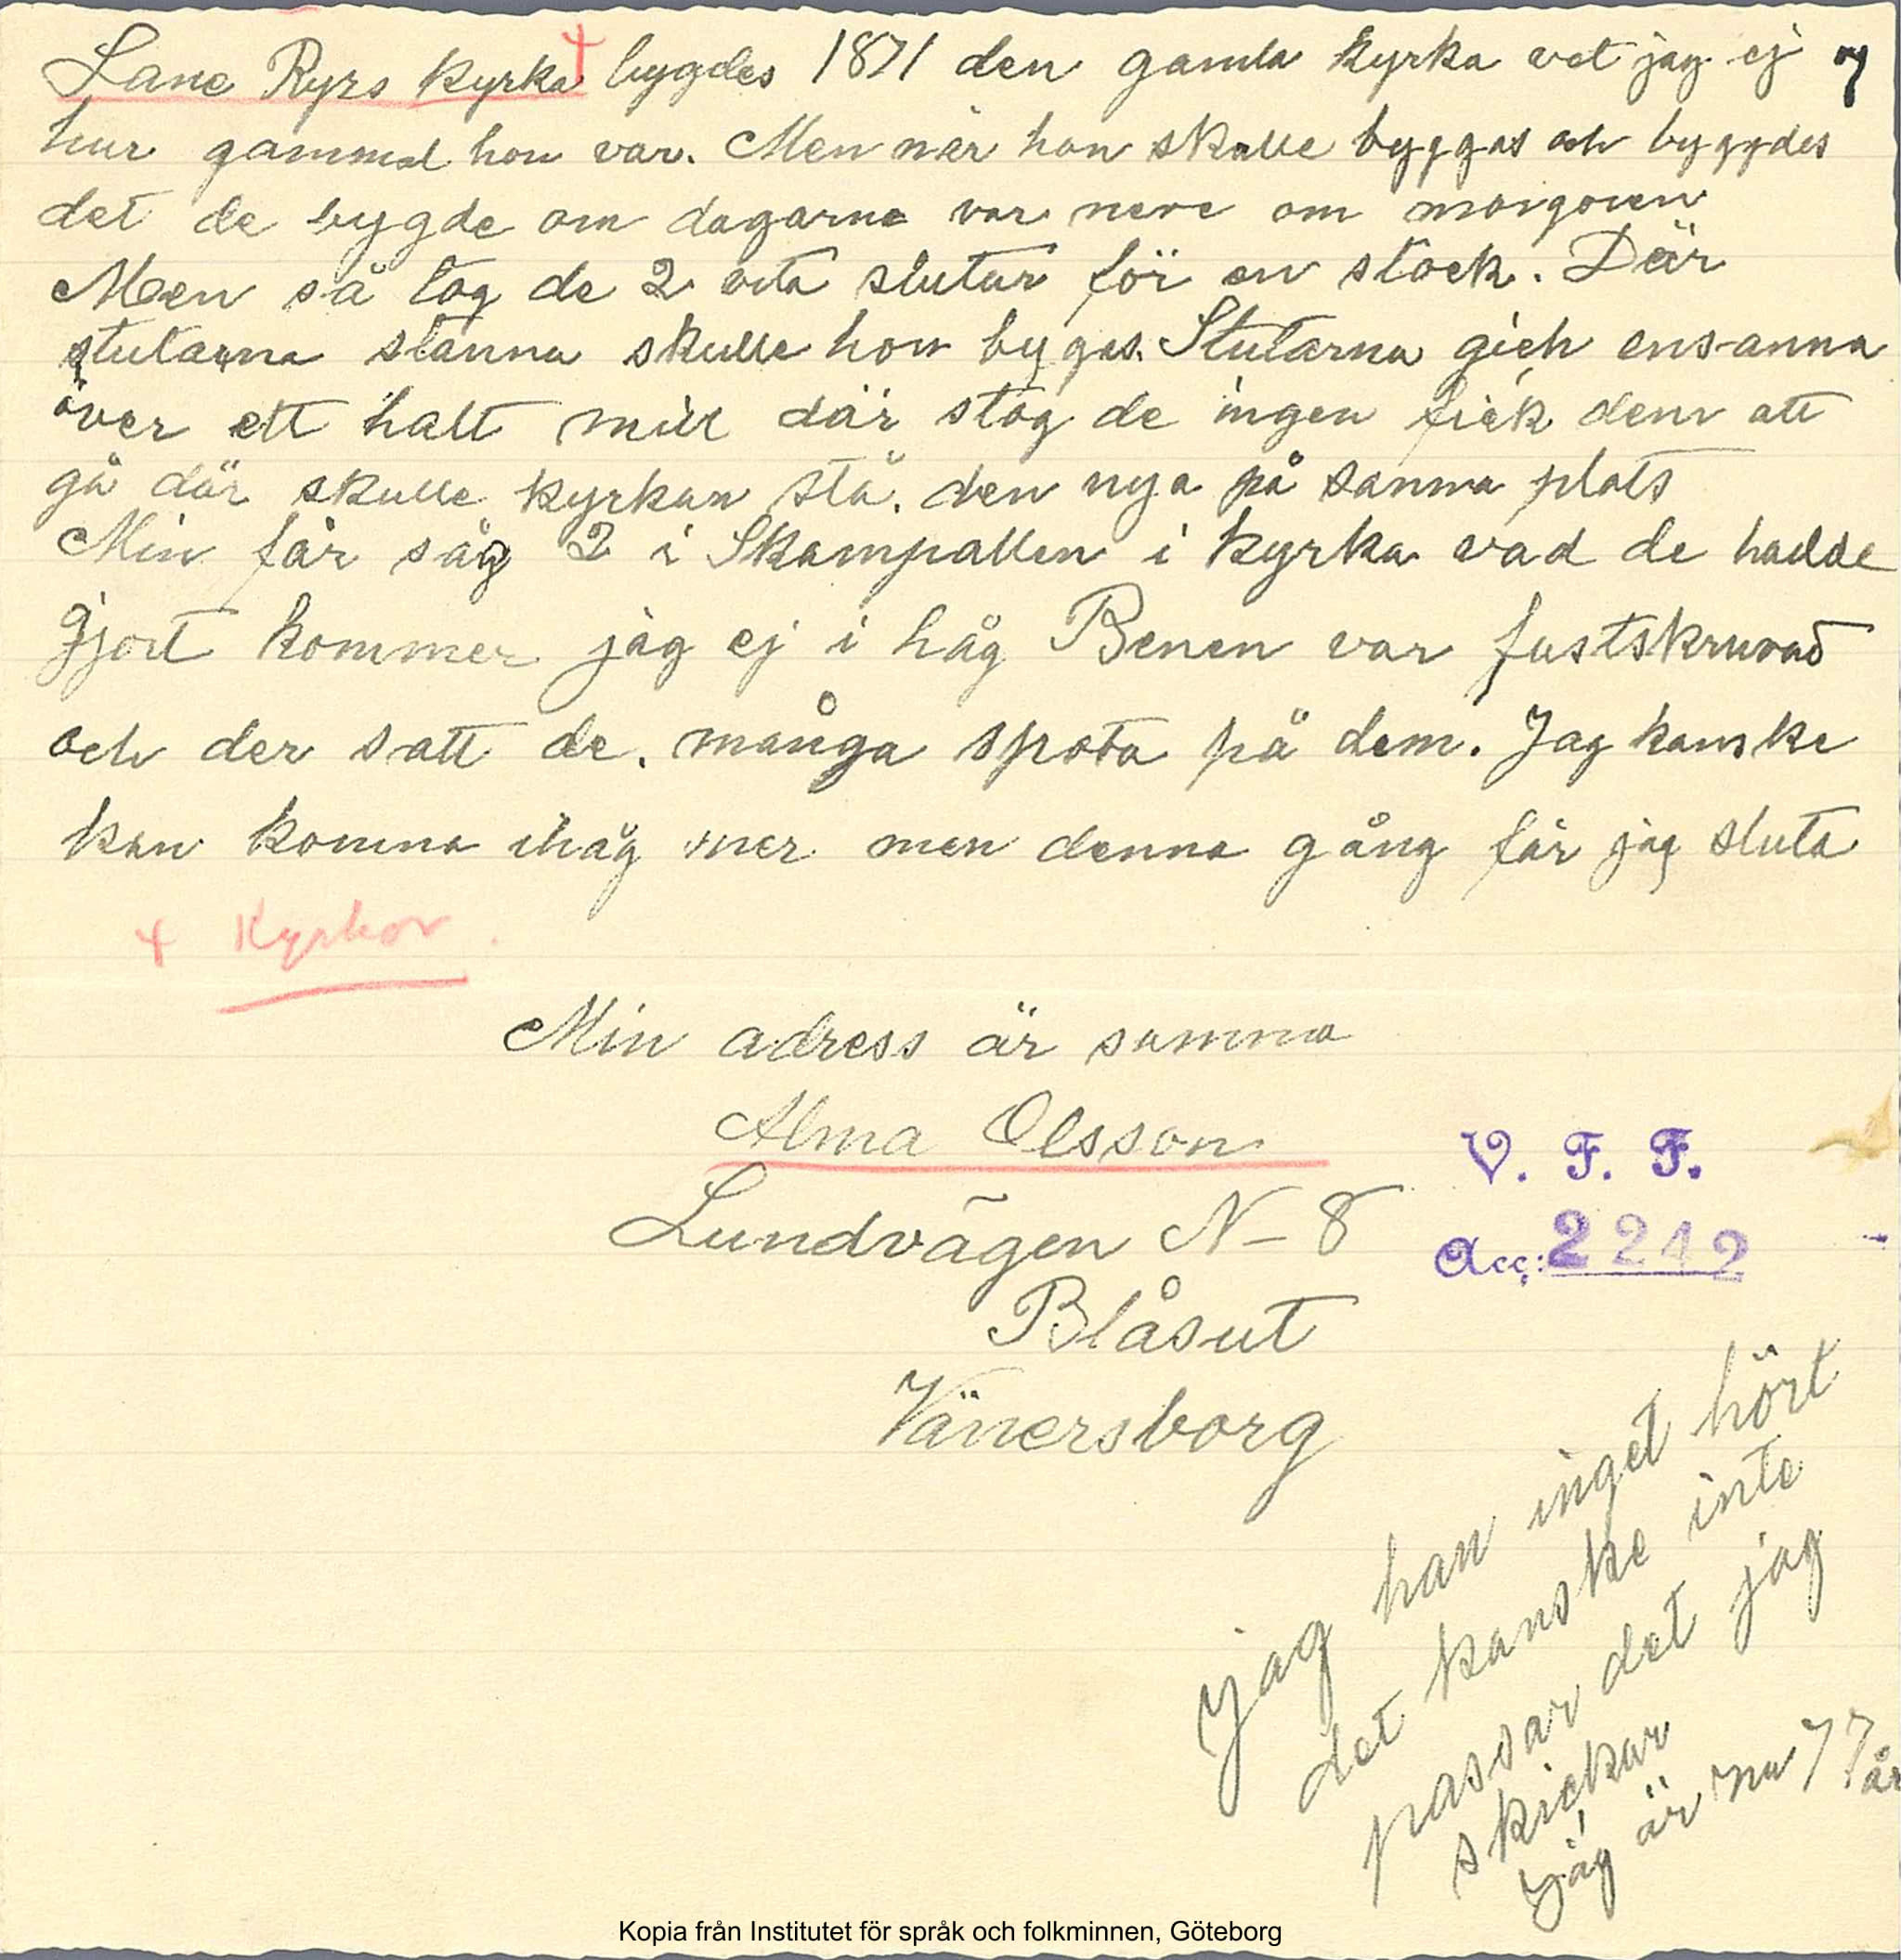 Lane Ryrs kyrka + bygdes 1871 den gamla kyrka vet jag ej 7
hur gammal hon var. Men när hon skulle byggas och byggdes
det de bygde om dagarna var nere om morgonen
Men så tog de 2 vita stutar för en stock. Där
stutarna stanna skulle hon bygas. Stutarna gick ensanna
över ett halt mil där stog de ingen fick dem att
gå där skulle kyrkan stå. den nya på samma plats
Min far såg 2 i Skampallen i kyrka vad de hadde
gjort kommer jag ej i håg Benen var fastskruvad
och der satt de. många spota på dem. Jag kanske
kan komma ihåg mer men denna gång får jag sluta
+ Kyrkor
Min adress är samma
Alma Olsson
V. F. F.
Lundvägen N-8
Acc: 2242
Blåsut
Vänersborg
Jag han inget hört
det kanske inte
passar det jag
skickar
jag är nu 77 år
Kopia från Institutet för språk och folkminnen, Göteborg